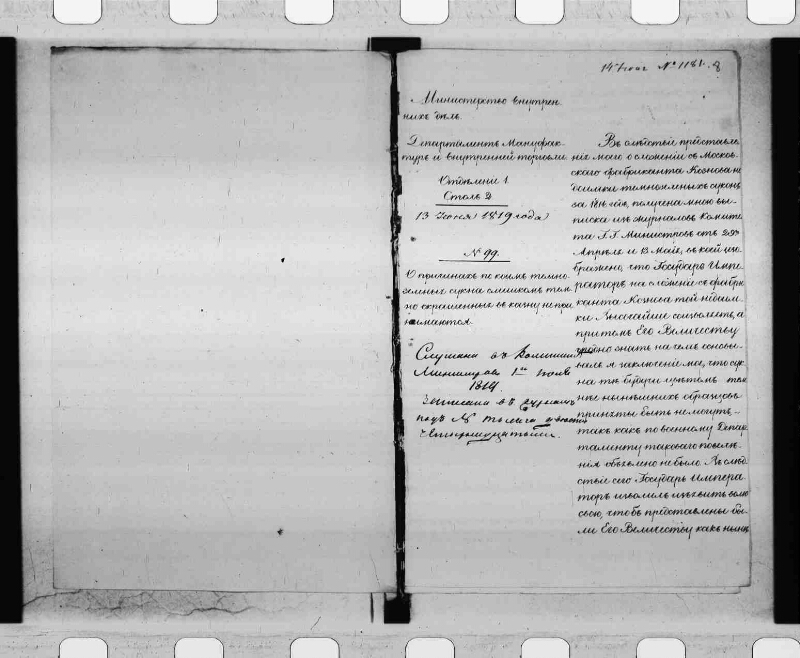 № 1181. 8
Министерство внутрен
нихъ дѣлъ.
Департаментъ Мануфак
туръ и внутренней торговли
Отдѣленіе 1.
Столъ 2
13 1819 года
№ 99.
О причинахъ по коимъ темно
зеленыхъ сукна слишкомъ тем
но окрашенныхъ въ казну не при
нимаются.
Слушана въ Комитетѣ
Министровъ 1го
1819.
Записана въ журналѣ
подъ № тысяча
Въ слѣдствіе представле
нія моего о сложеніи съ Москов
скаго фабриканта недоимки темнозеленыхъ суконъ
за годъ, получена мною вы
писка изъ журналовъ Комите
та Г.Г. Министровъ отъ 29го
Апрѣля и 13 Мая, въ коей изо
бражено, что Государь Импе
раторъ на сложеніе съ фабри
канта той недоим
ки Высочайше соизволяетъ, а
при томъ Его Величеству
угодно знать на чемъ основы
валъ я заключеніе мое, что сук
на тѣ будучи цвѣтомъ тем
нѣе нынѣшнихъ образцовъ
приняты быть не могутъ, –
такъ какъ по военному Депар
таменту таковаго повелѣ
нія объявлено не было. Въ слѣд
ствіе сего Государь Импера
торъ изволилъ изъявить волю
свою, чтобъ представлены бы
ли Его Величеству какъ нынѣ